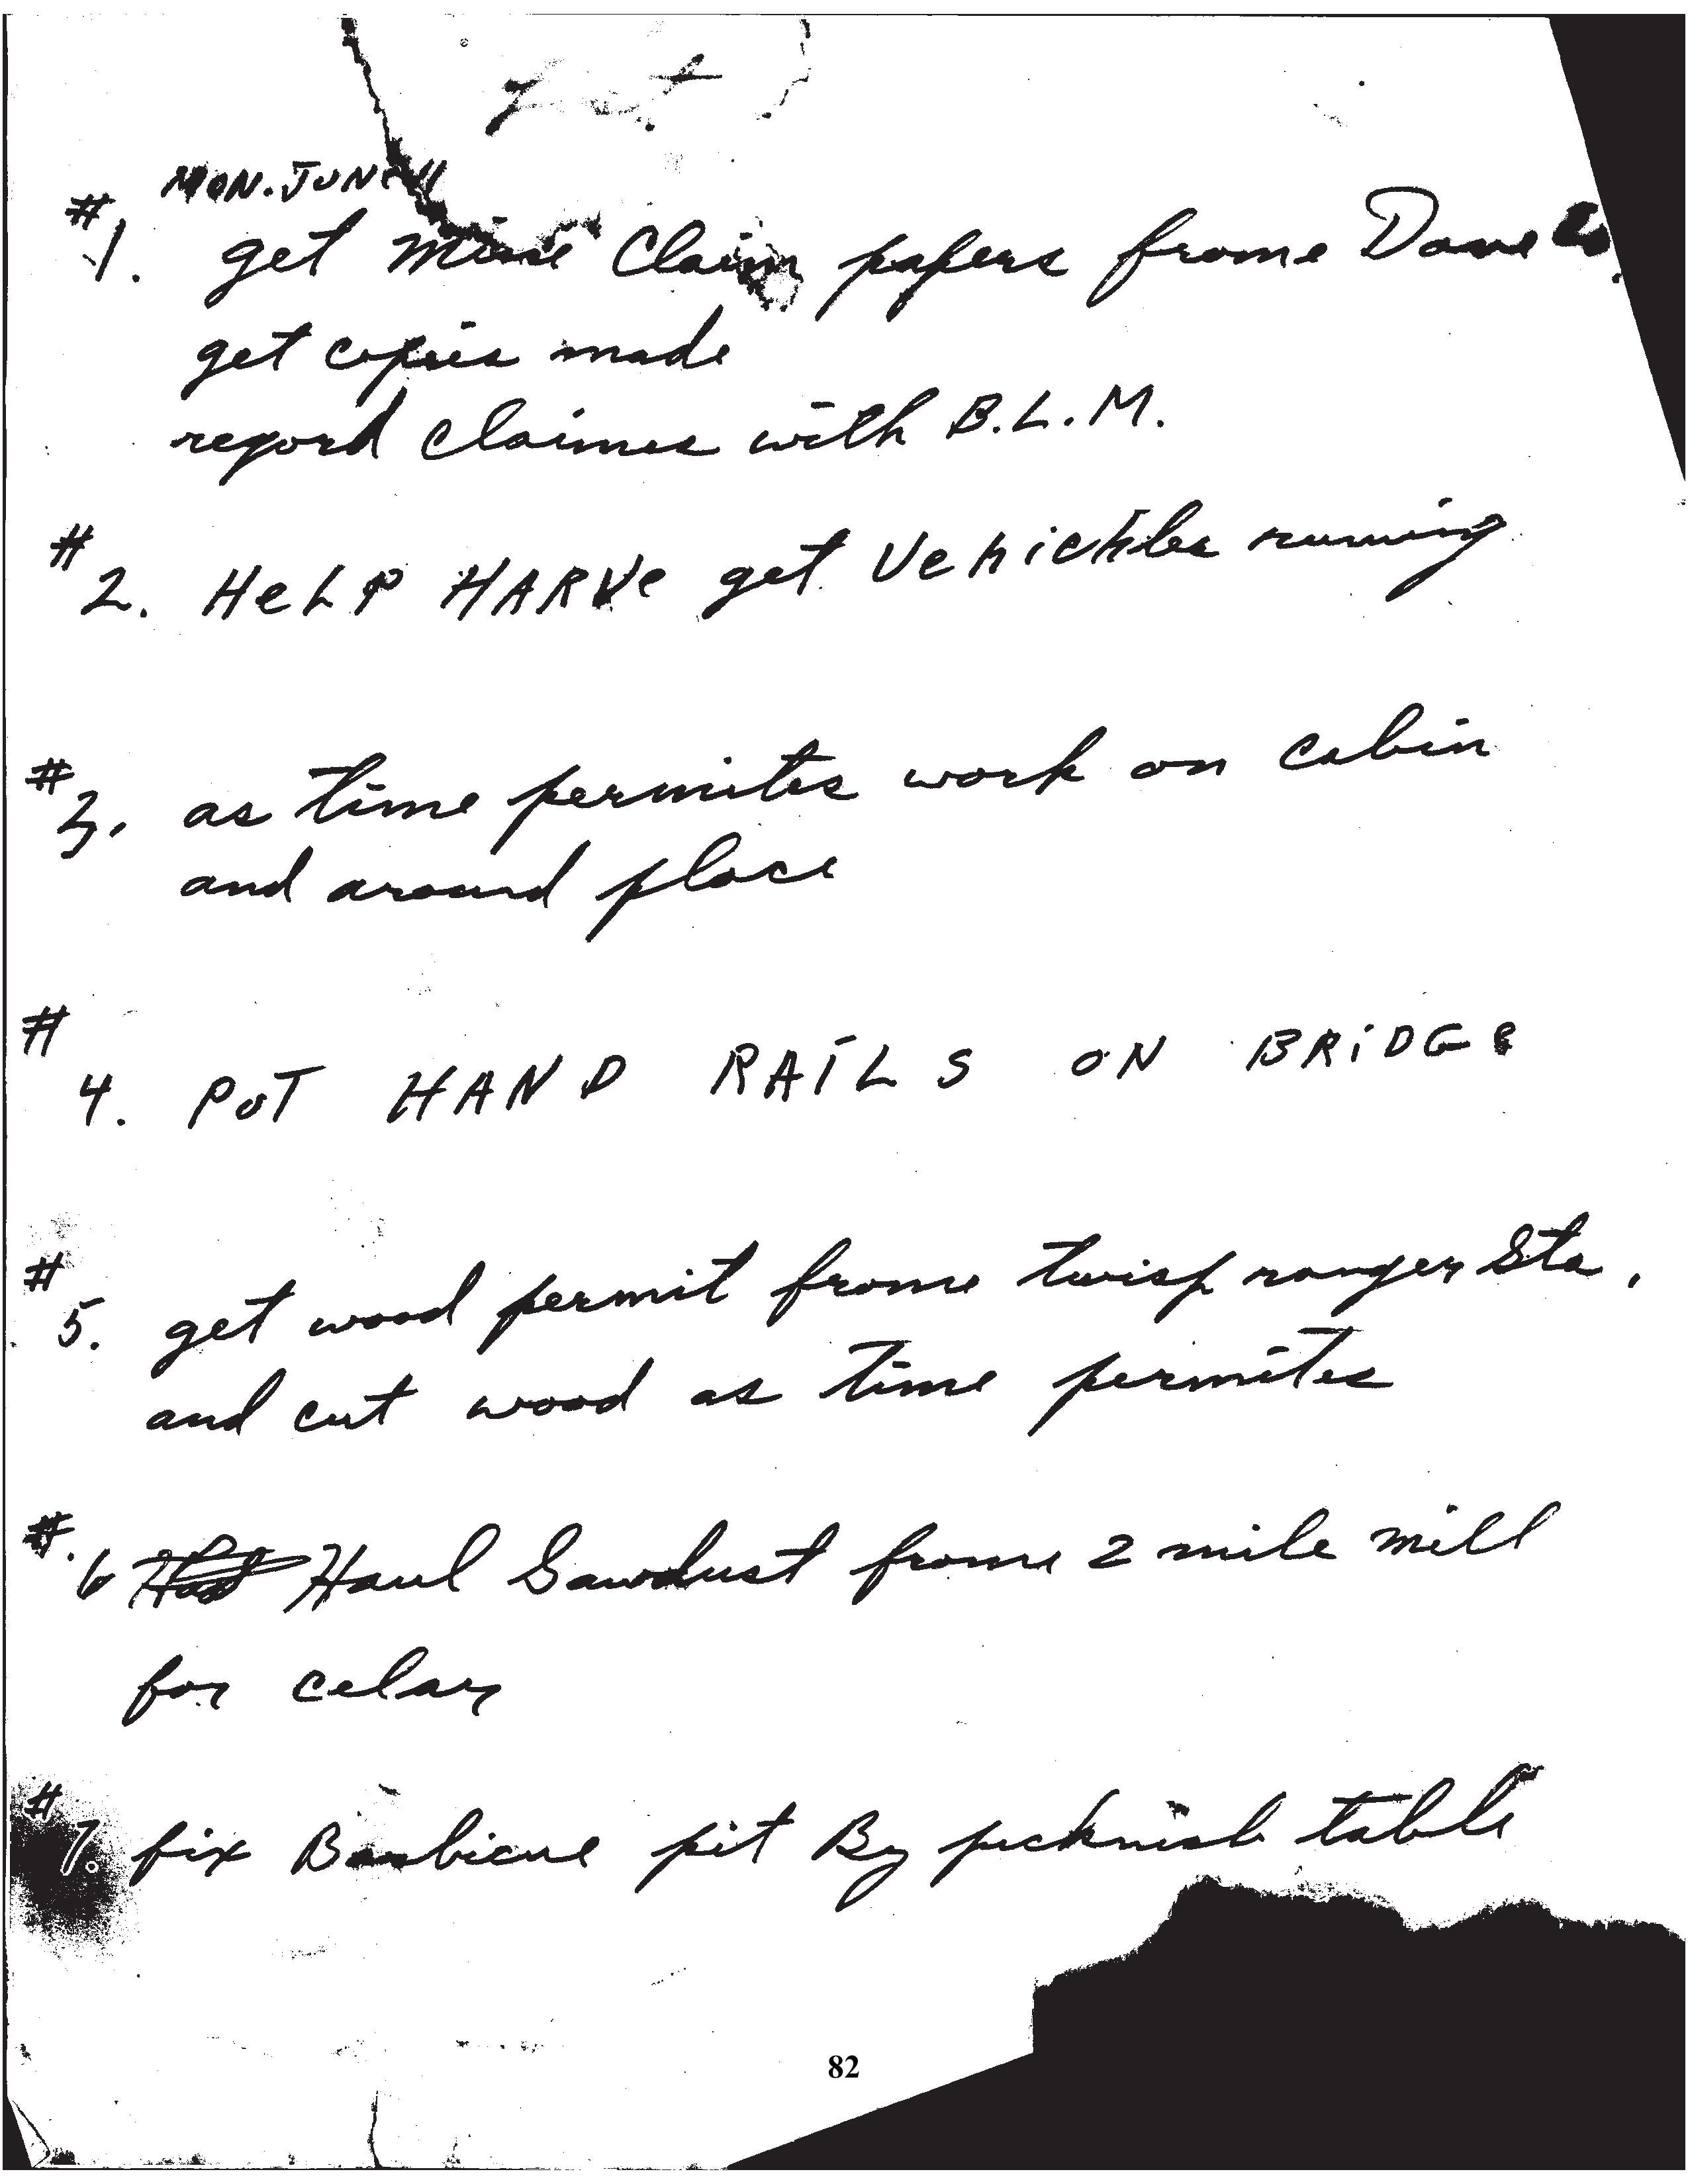 MON. JUNE 11
#1. get mine Claim papers frome Dave
get copies made
regord claimes with B.L.M.
#2. HeLP HARVe get Vehichles running
#3. as time permites work on cabin
and around place
#4. PUT HAND RAILS ON BRiDGe
#5. get wood permit frome twisp ranger Sta.
and cut wood as time permites
#.6 Haul Sawdust frome 2 mile mill
for celar
#7. fix Barbicue pit By picknick table
82